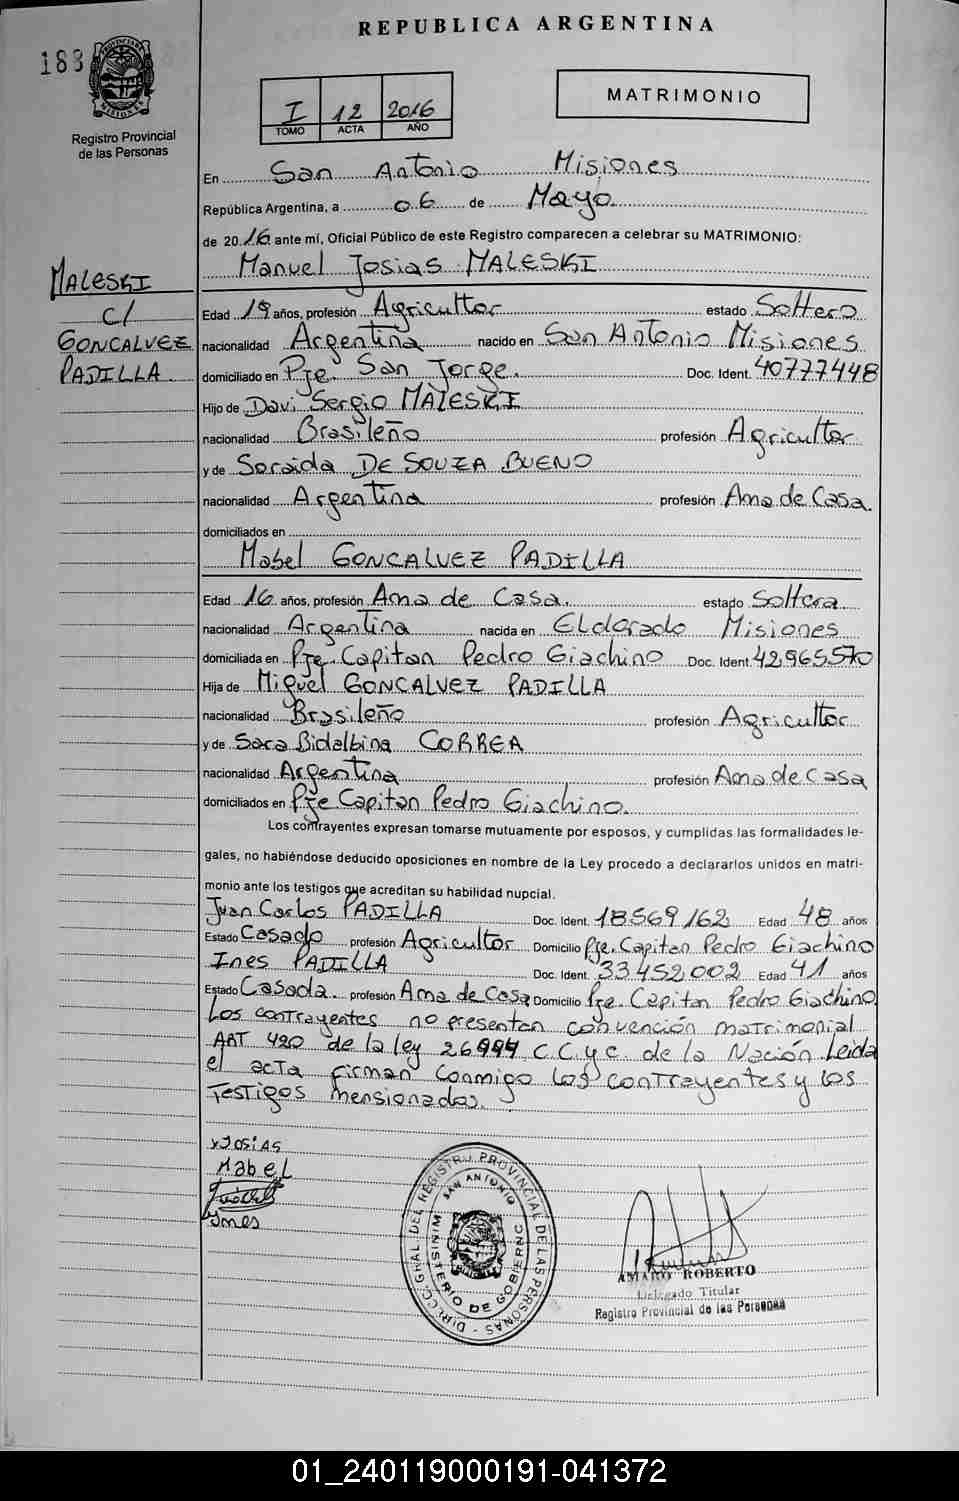 REPUBLICA ARGENTINA
183
Registro Provincial
de las Personas
I 12 2016
TOMO ACTA AÑO
MATRIMONIO
En San Antonio Misiones
República Argentina, a 06 de Mayo
de 2016 ante mí, Oficial Público de este Registro comparecen a celebrar su MATRIMONIO:
Manuel Josias MALESKI
MALESKI
c/
GONCALVEZ
PADILLA
Edad 19 años, profesión Agricultor estado Soltero
nacionalidad Argentina nacido en San Antonio Misiones
domiciliado en Pje. San Jorge. Doc. Ident. 40777448
Hijo de Davi Sergio MALESKI
nacionalidad Brasileño profesión Agricultor
y de Soraida DE SOUZA BUENO
nacionalidad Argentina profesión Ama de Casa.
domiciliados en
Mabel GONCALVEZ PADILLA
Edad 16 años, profesión Ama de Casa. estado Soltera
nacionalidad Argentina nacida en Eldorado Misiones
domiciliada en Pje. Capitan Pedro Giachino Doc. Ident. 42965570
Hija de Miguel GONCALVEZ PADILLA
nacionalidad Brasileño profesión Agricultor
y de Sara Bidalbina CORREA
nacionalidad Argentina profesión Ama de Casa
domiciliados en Pje Capitan Pedro Giachino.
Los contrayentes expresan tomarse mutuamente por esposos, y cumplidas las formalidades le-
gales, no habiéndose deducido oposiciones en nombre de la Ley procedo a declararlos unidos en matri-
monio ante los testigos que acreditan su habilidad nupcial.
Juan Carlos PADILLA Doc. Ident. 18569162 Edad 48 años
Estado Casado profesión Agricultor Domicilio Pje. Capitan Pedro Giachino
Ines PADILLA Doc. Ident. 33452002 Edad 41 años
Estado Casada. profesión Ama de Casa Domicilio Pje. Capitan Pedro Giachino
Los contrayentes no presentan convención matrimonial
ART 420 de la ley 26994 C.C.y C. de la Nación. Leida
el acta firman conmigo los contrayentes y los
Testigos mensionados.
x Josias
Mabel
Ines
DIRECC. GRAL. DEL REGISTRO PROVINCIAL DE LAS PERSONAS
SAN ANTONIO
MINISTERIO DE GOBIERNO
AMARO ROBERTO
Delegado Titular
Registro Provincial de las Personas
01_240119000191-041372